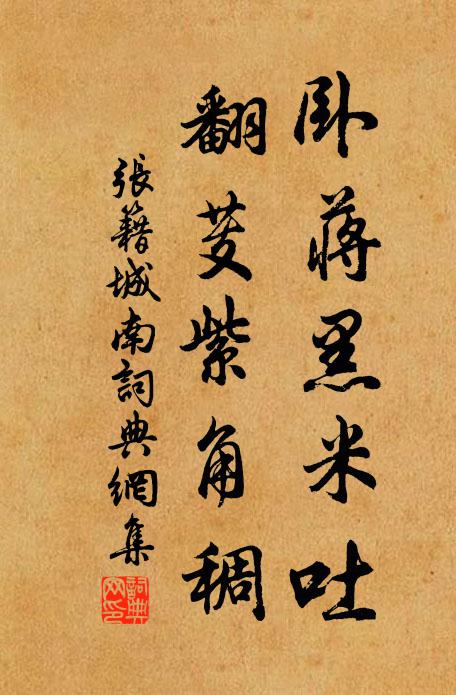 卧蔣黑米吐
翻芰紫角稠
張籍城南詞典網集
詞典網印